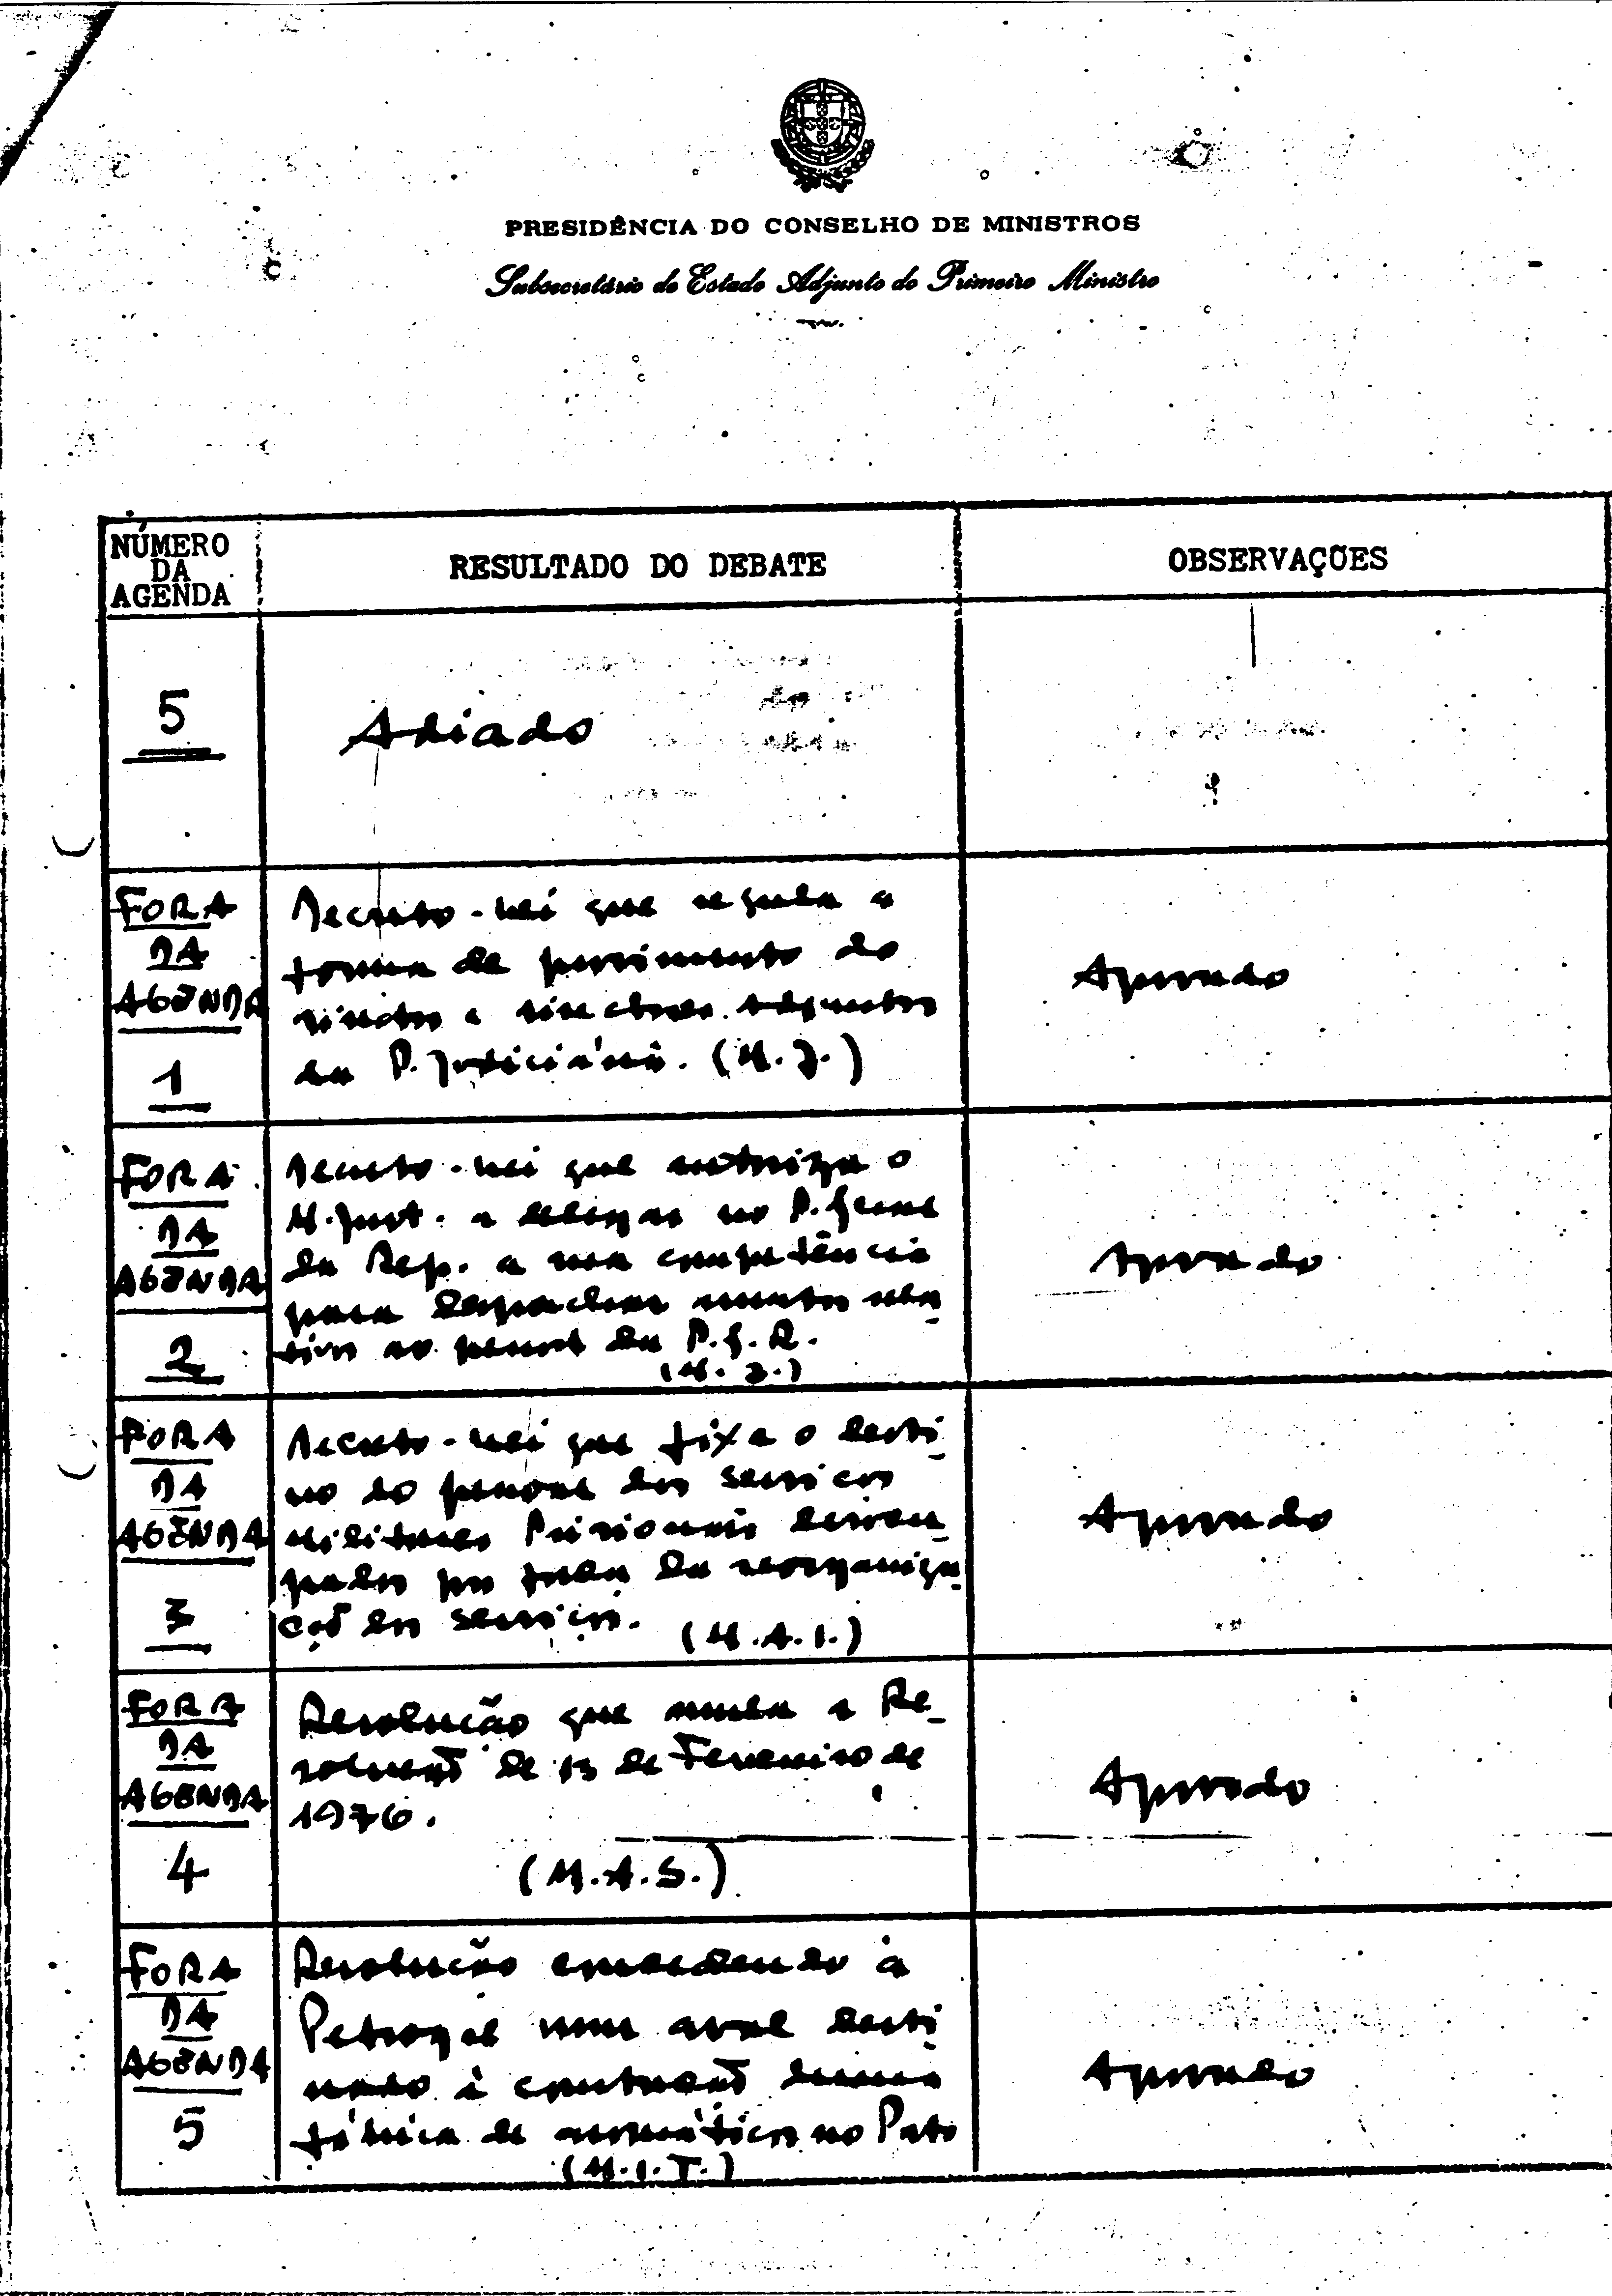 PRESIDÊNCIA DO CONSELHO DE MINISTROS
Subsecretário de Estado Adjunto do Primeiro Ministro
NÚMERO
DA
AGENDA
RESULTADO DO DEBATE
OBSERVAÇÕES
5
Adiado
FORA
DA
AGENDA
1
Decreto-lei que regula a
forma de provimento do
director e directores adjuntos
da P. Judiciária. (M.J.)
Aprovado
FORA
DA
AGENDA
2
Decreto-lei que autoriza o
M. Just. a delegar no P. Geral
da Rep. a sua competência
para despachar assuntos rela
tivos ao pessoal da P.G.R.
(M.J.)
Aprovado
FORA
DA
AGENDA
3
Decreto-lei que fixa o desti
no do pessoal dos serviços
Militares Prisionais
por da reorganiza
ção dos serviços. (M.A.I.)
Aprovado
FORA
DA
AGENDA
4
Resolução que anula a Re_
solução de 13 de Fevereiro de
1976.
(M.A.S.)
Aprovado
FORA
DA
AGENDA
5
Resolução concedendo à
Petrogal um aval desti
nado à construção duma
fábrica de aromáticos no Porto
(M.I.T.)
Aprovado